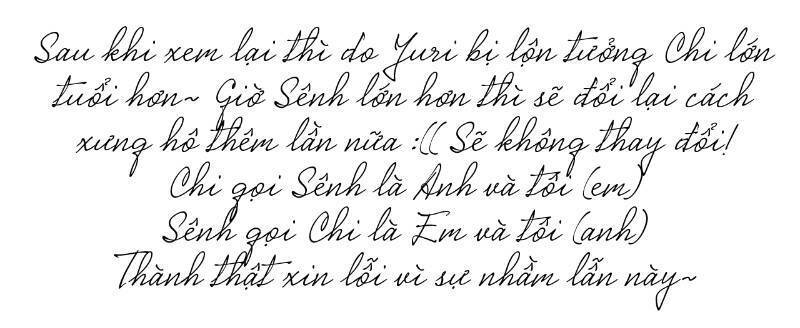 Sau khi xem lại thì do Yuri bị lộn tưởng Chi lớn
tuổi hơn~ Giờ Sênh lớn hơn thì sẽ đổi lại cách
xưng hô thêm lần nữa :(( Sẽ không thay đổi!
Chi gọi Sênh là Anh và tôi (em)
Sênh gọi Chi là Em và tôi (anh)
Thành thật xin lỗi vì sự nhầm lẫn này~